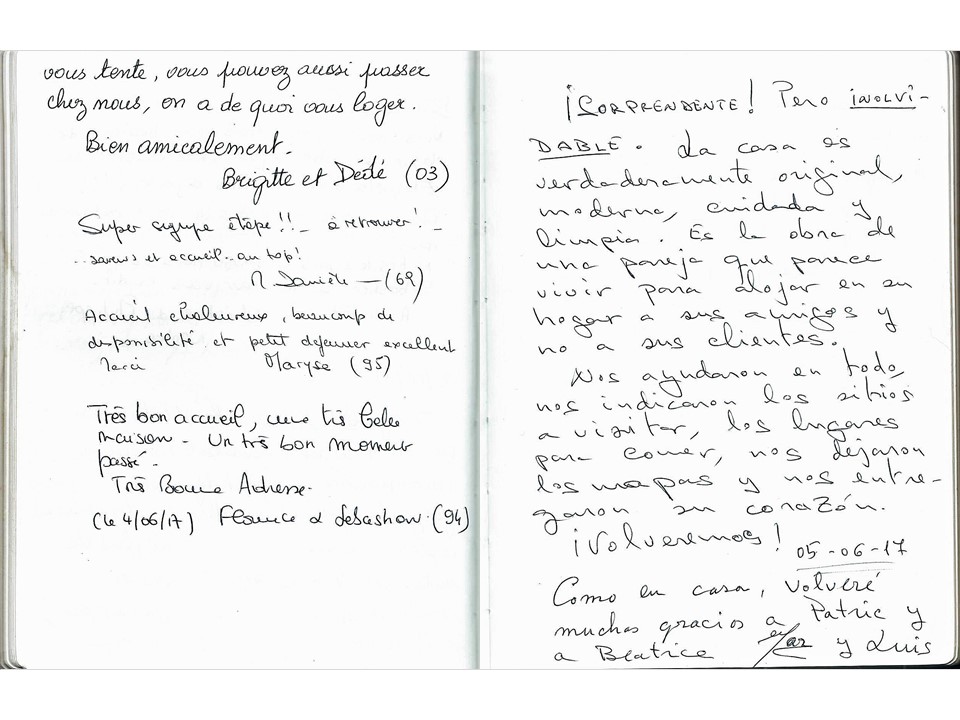 vous tente, vous pouvez aussi passer
chez nous, on a de quoi vous loger.
Bien amicalement.
Brigitte et Dédé (03)
Super sympe étape!!_ à retrouver!_
... et accueil.. au top!
Danièle — (69)
Accueil chaleureux, beaucoup de
disponibilité, et petit dejeuner excellent
Merci Maryse (95)
Très bon accueil, une très belle
maison - Un très bon moment
passé.
Très Bonne Adresse.
(Le 4/06/17) Florence & Sebastian. (94)
¡SORPRENDENTE! Pero INOLVI-
DABLE. La casa es
verdaderamente original,
moderna, cuidada y
limpia. Es la obra de
una pareja que parece
vivir para alojar en su
hogar a sus amigos y
no a sus clientes.
Nos ayudaron en todo,
nos indicaron los sitios
a visitar, los lugares
para comer, nos dejaron
los mapas y nos entre-
garon su corazón.
¡Volveremos! 05-06-17
Como en casa, volveré
muchas gracios a Patric y
a Beatrice y Luis